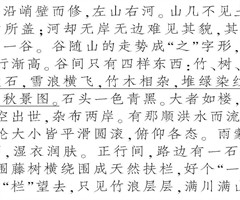 沿峭壁而修,左山右河。山几不见土
所盖;河却无岸无边难见其貌,只见
一谷。谷随山的走势成“之”字形,
行渐高。谷间只有四样东西:竹、树、
石,雪浪横飞,竹木相杂,堆绿染红
秋景图。石头一色青黑。大者如楼,
空出世,杂布两岸。有那顺洪水而流
论大小皆平滑圆滚,俯仰各态。雨蒙
,湿衣润肤。正行间,路边有一石
围藤树横绕围成天然扶栏,好个“一
“栏”望去,只见竹浪层层,满川满山